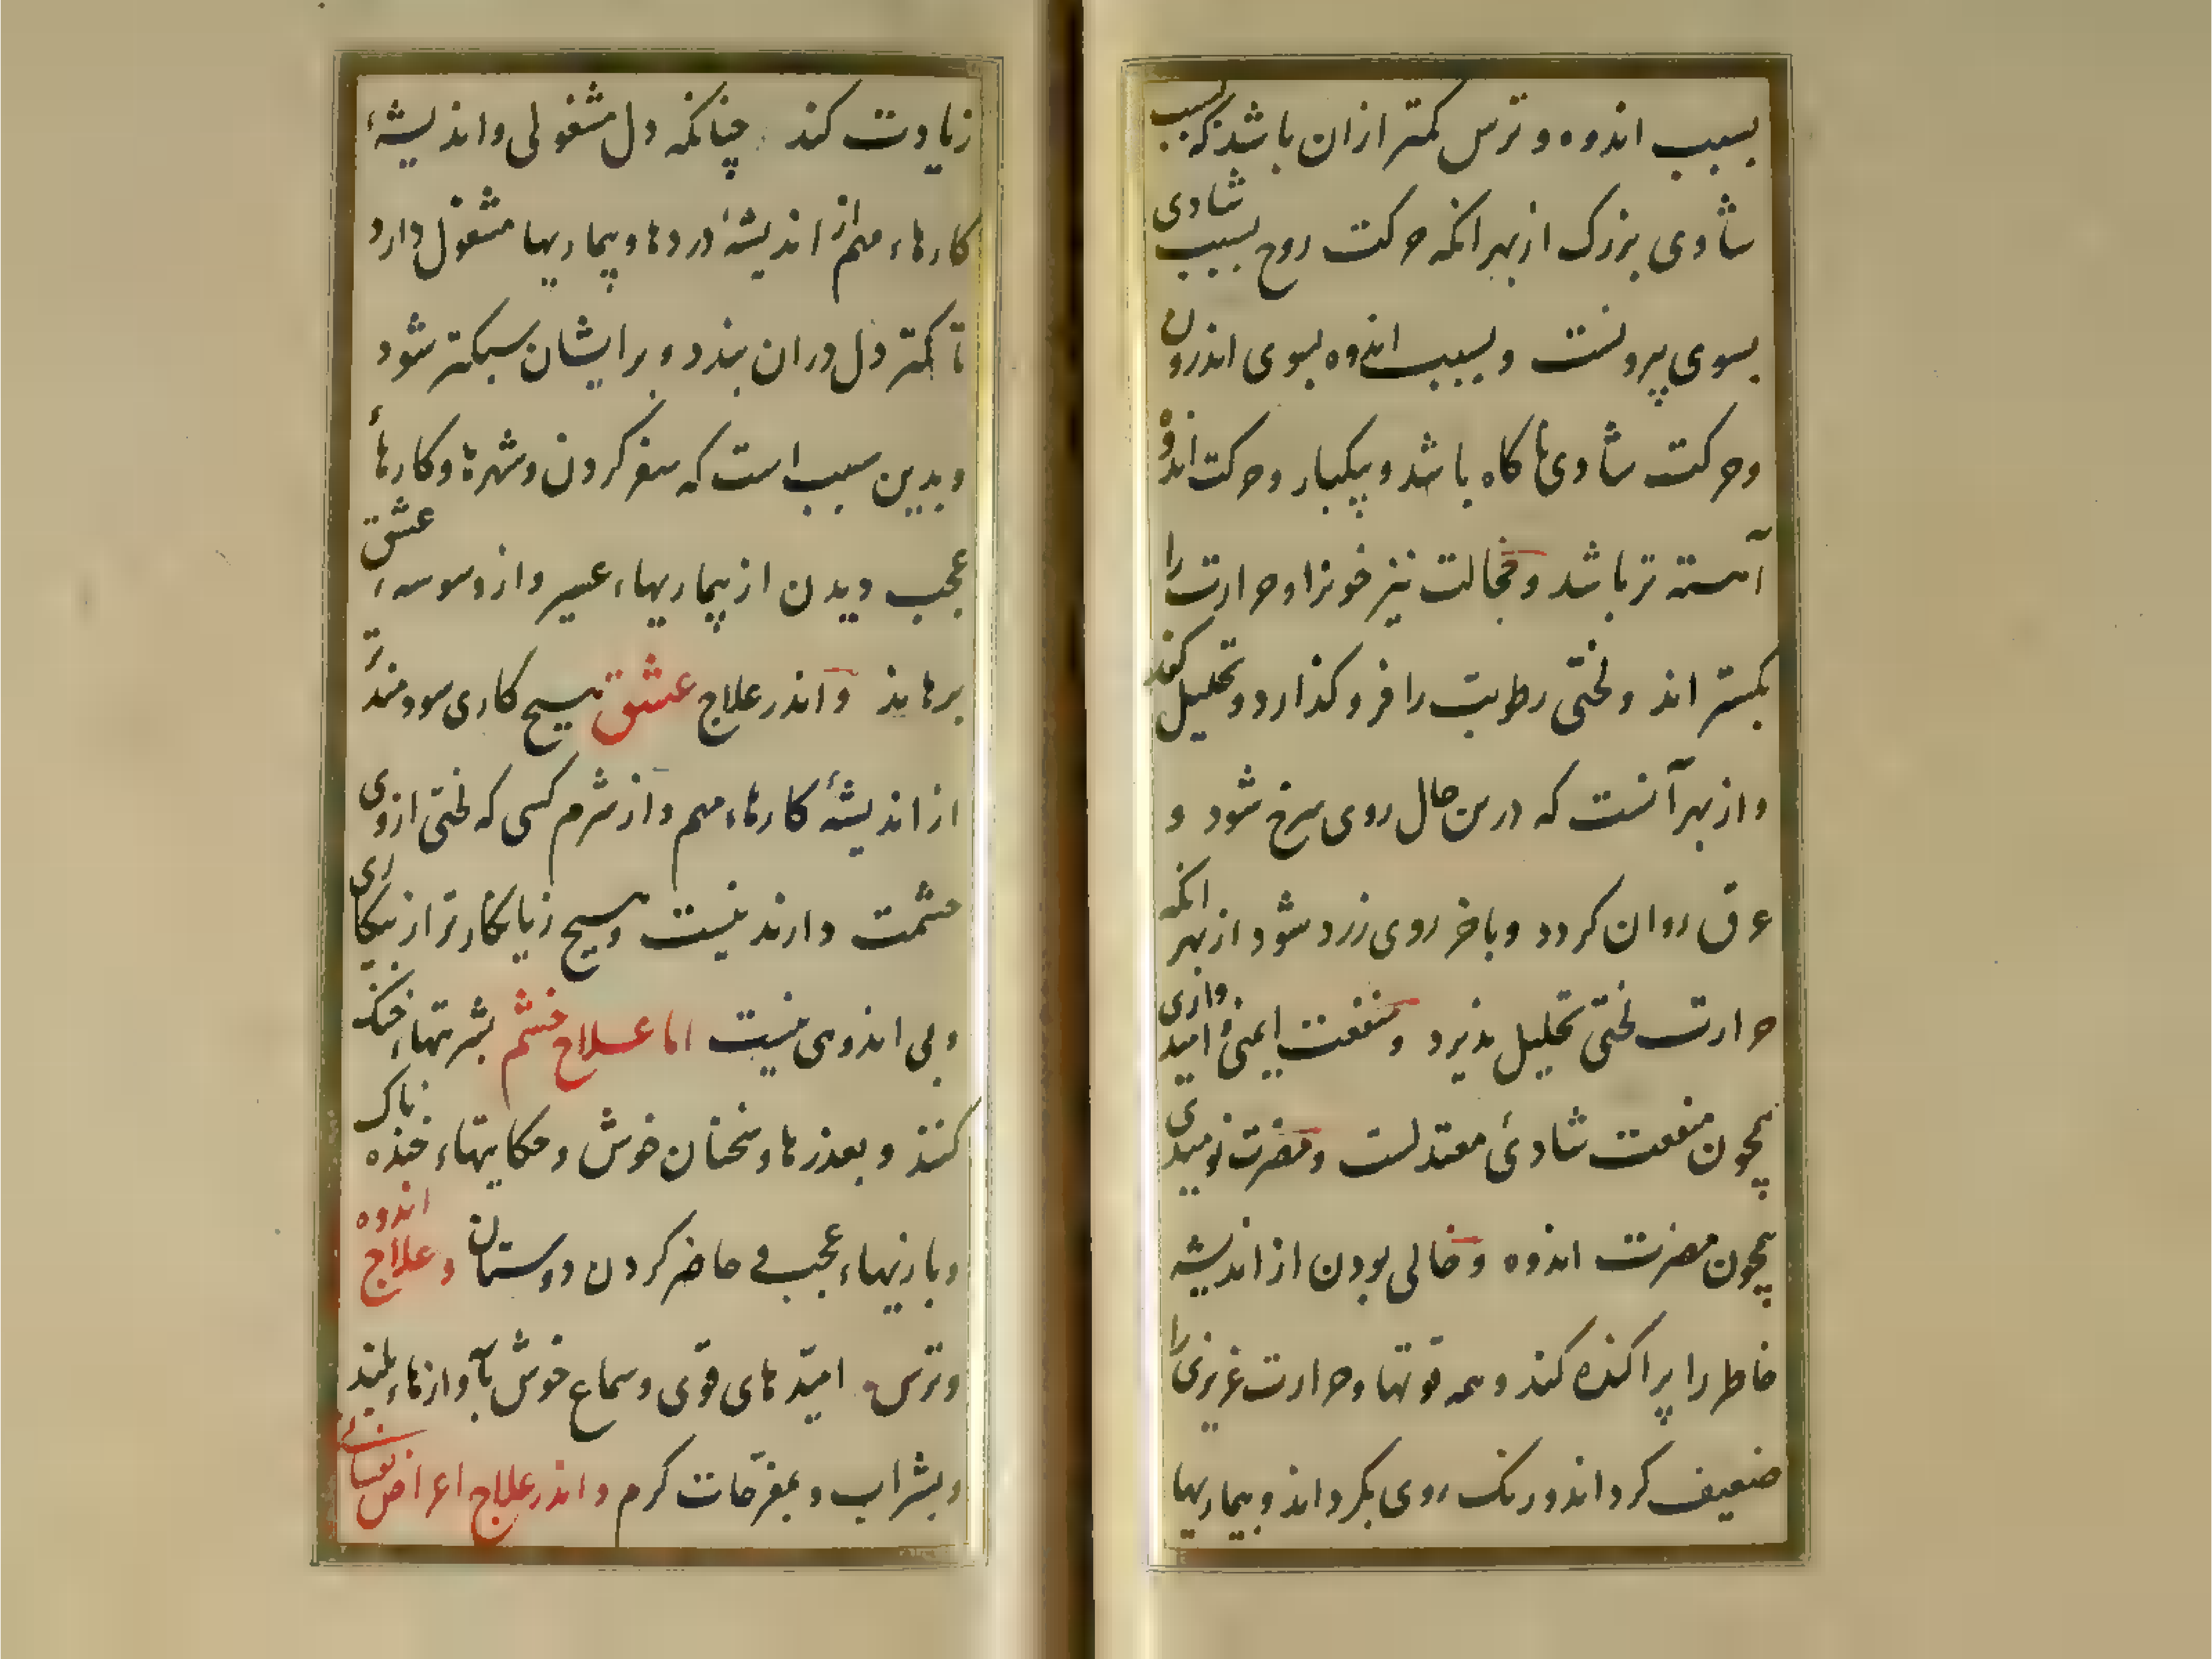 بسبب اندوه و ترس کمتر ازان باشد که بسبب
شادی بزرک از بهر انکه حرکت روح بسبب شادی
بسوی بیرونست و بسبب اندوه بسوی اندرون
وحرکت شادی ناکاه باشد و بیکبار وحرکت اندوه
آهسته تر باشد وخجالت نیز خونرا وحرارت را
بکستراند ولختی رطوبت را فرو کذارد و تحلیل کند
واز بهر آنست که درین حال روی سرخ شود و
عرق روان کردد وباخر روی زرد شود از بهر انکه
حرارت لختی تحلیل پذیرد ومنفعت ایمنی وامیدواری
همچون منفعت شادئ معتدلست ومضرت نومیدی
همچون مضرت اندوه وخالی بودن از اندیشه
خاطر را پراکنده کند وهمه قوتها وحرارت غریزی را
ضعیف کرداند ورنک روی بکرداند وبیماریها
زیادت کند چنانکه دل مشغولی واندیشهٔ
کارهاء مهم از اندیشهٔ دردها وبیماریها مشغول دارد
تا کمتر دل دران بندد وبرایشان سبکتر شود
وبدین سبب است که سفر کردن وشهرها وکارهاء
عجب دیدن از بیماریهاء عسیر واز وسوسهء عشق
برهاند واندر علاج عشق هیچ کاری سودمندتر
از اندیشهٔ کارهاء مهم واز شرم کسی که لختی ازوی
حشمت دارند نیست وهیچ زیانکارتر از بیکاری
وبی اندوهی نیست اما علاج خشم بشربتهاء خنک
کنند وبعذرها وسخنان خوش وحکایتهاء خنده ناک
وبازیهاء عجب حاضر کردن دوستان وعلاج اندوه
وترس امیدهای قوی وسماع خوش باوازهاء بلند
وبشراب وبمفرحات کرم واندر علاج اعراض نفسانی